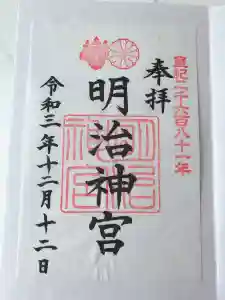 皇紀二千六百八十一年
奉拝
明治神宮
明治神宮
令和三年十二月十二日